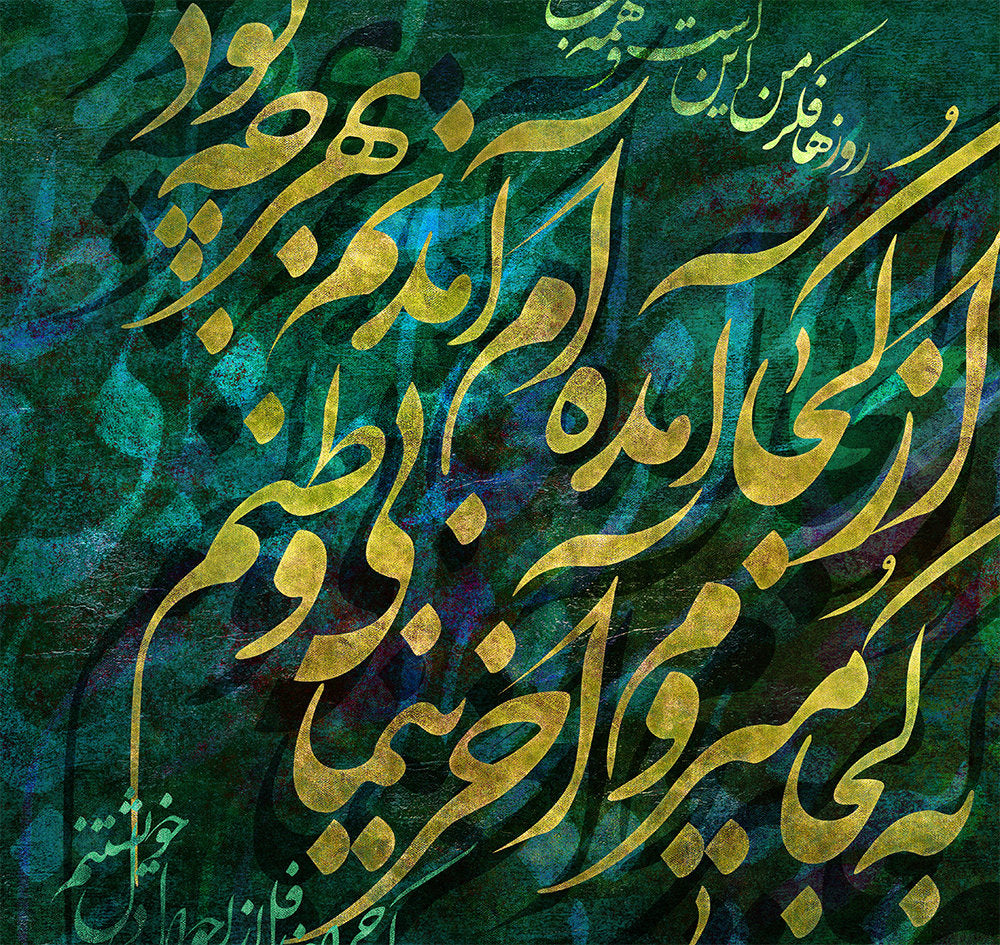 روزها فکر من این است و همه
از کجا آمده ام آمدنم بهر چه بود
به کجا میروم آخر ننمایی وطنم
غافل از احوال دل خویشتنم